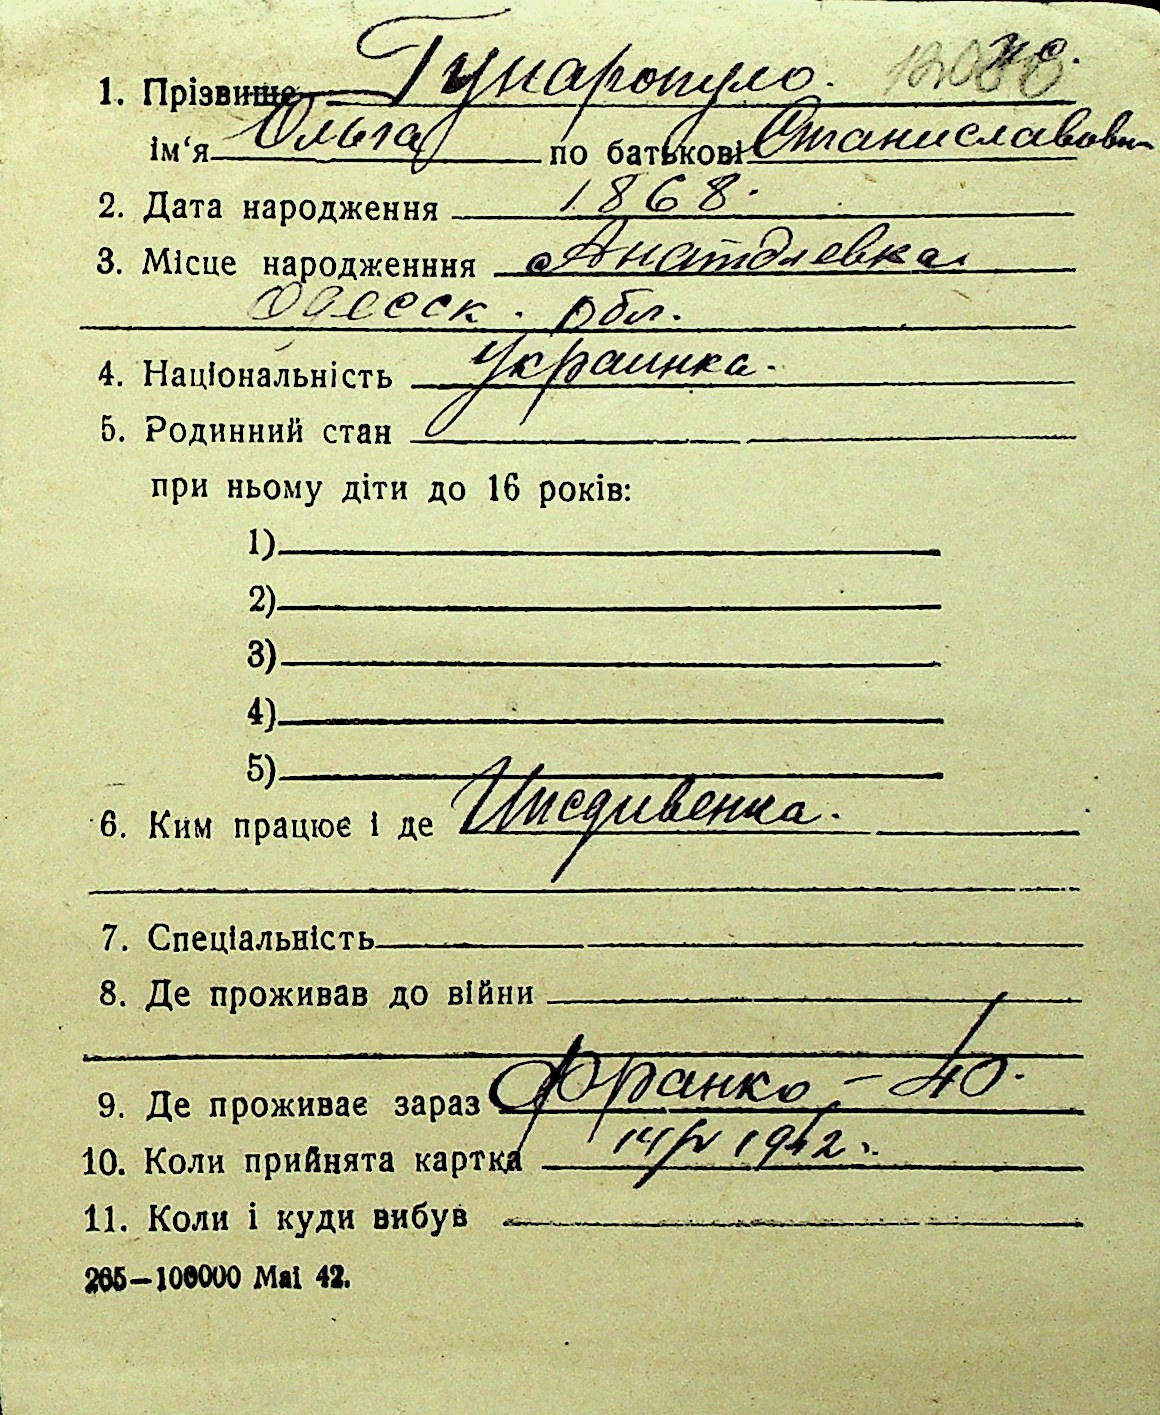 1. Прізвище Гунаропуло.
ім‘я Ольга по батькові Станиславовн
2. Дата народження 1868.
3. Місце народженння с Анатолевка
Одесск. обл.
4. Національність Украинка.
5. Родинний стан
при ньому діти до 16 років:
1)
2)
3)
4)
5)
6. Ким працює і де Иждивенка.
7. Спеціальність
8. Де проживав до війни
9. Де проживає зараз Франко – 40.
10. Коли прийнята картка 1942.
11. Коли і куди вибув
265–100000 Mai 42.